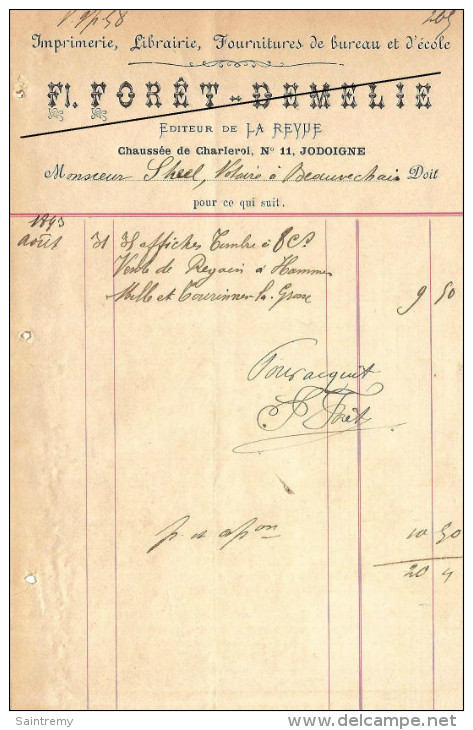 205
Imprimerie, Librairie, Fournitures de bureau et d'école
Fl. FORÊT-DEMELIE
EDITEUR DE LA REVUE
Chaussée de Charleroi, N° 11, JODOIGNE
Monsieur Sheel, Notaire à Beauvechain Doit
pour ce qui suit.
1893
Août 31 affiches Timbre à 8 Cs
Vente de Regain à Hamme
Mille et Tourinnes-la-Grosse 9 50
Pour acquit
Forêt
10 50
20
Saintremy
www.delcampe.net